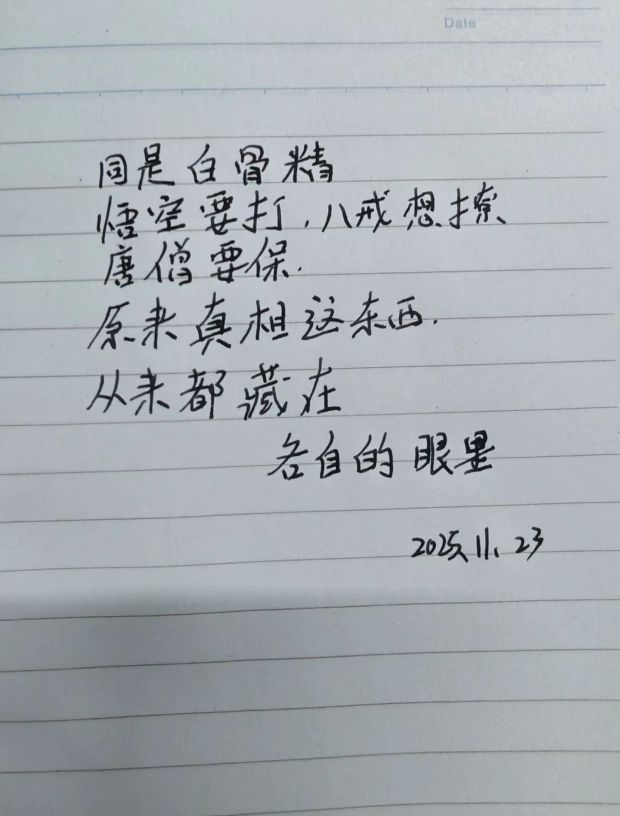 Date
同是白骨精
悟空要打,八戒想撩
唐僧要保.
原来真相这东西.
从来都藏在
各自的眼里
2025.11.23